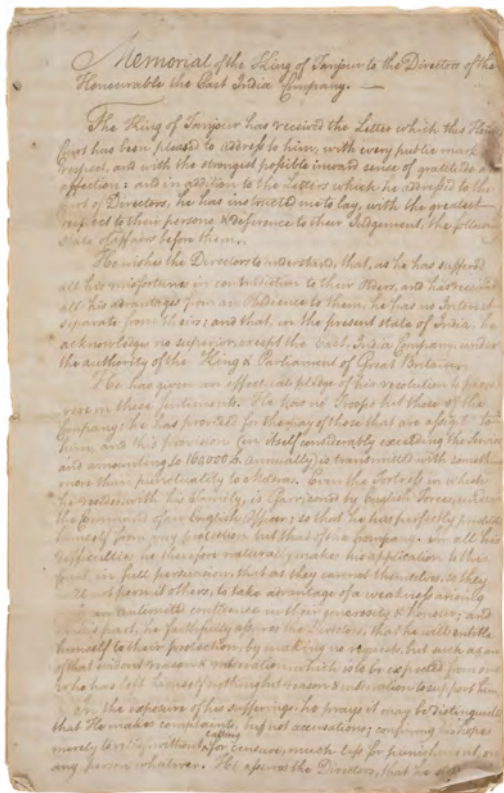 Memorial of the King of Tanjour to the Directors of the
Honourable the East India Company. —
The King of Tanjour has received the Letter which this Hon
Court has been pleased to address to him, with every public mark
respect, and with the strongest possible inward sense of gratitude
affection: and in addition to the Letters which he addressed to the
Court of Directors, he has instructed me to lay, with the greatest
respect to their persons & deference to their Judgement, the
State of affairs before them.
He wishes the Directors to understand, that, as he has suffered
all his misfortunes in contradiction to their Orders, and has
all his advantages from an Obedience to them, he has no Interest
separate from theirs; and that, in the present state of India, he
acknowledges no superior, except the East India Company, under
the authority of the King & Parliament of Great Britain.
He has given an effectual pledge of his resolution to
in these sentiments. He has no Troops but those of the
Company: he has provided for the pay of those that are
him, and this provision (in itself considerably exceeding the Service
and amounting to 160,000 £. annually) is transmitted with
more than punctuality to Madras. Even the Fortress in which
he resides, with his Family, is Garrisoned by English Forces, under
the Command of an English Officer; so that he has perfectly
himself from any protection but that of the Company. In all his
difficulties he therefore naturally makes his application to this
Court, in full persuasion, that as they cannot themselves, so they
will not permit others, to take advantage of a weakness arising
an unlimited confidence in their generosity & honour; and
his part, he faithfully assures the Directors, that he will entitle
himself to their protection, by making no requests, but such as
of that evident reason & moderation, which is to be expected from one
who has left himself nothing but reason & moderation to support him
In the exposure of his sufferings, he prays it may be distinguished
that He makes complaints, not accusations; confining his hopes
merely to without calling for censure, much less for punishment, on
any person whatever. He assures the Directors, that he